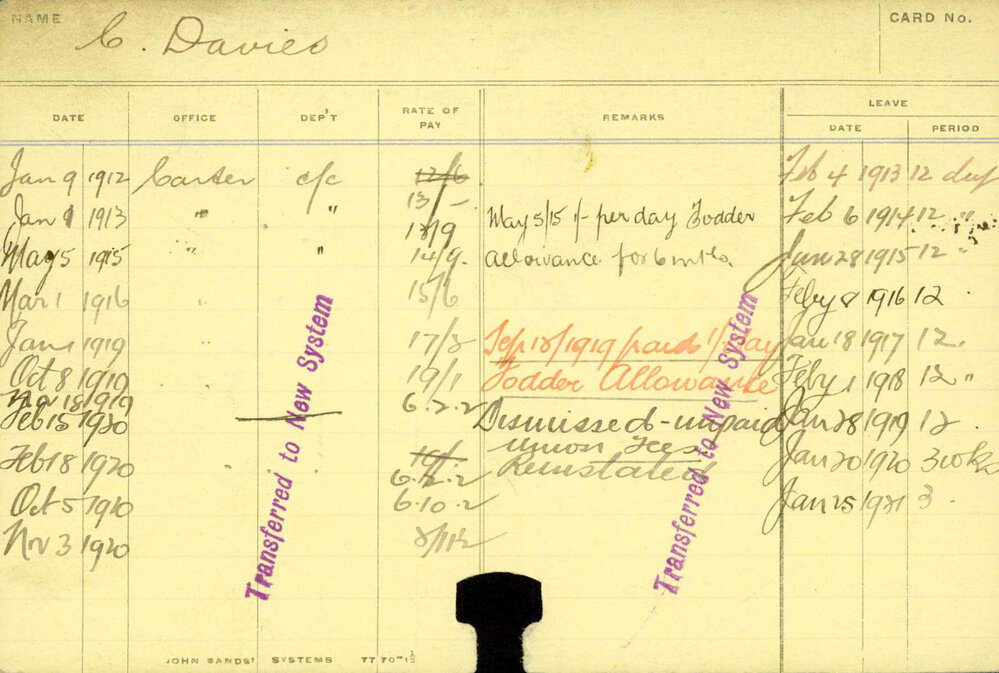 NAME C. Davies CARD No.
LEAVE
DATE OFFICE DEP'T RATE OF PAY REMARKS DATE PERIOD
Jan 9 1912 Carter c/c 12/6 Feb 4 1913 12 days
13/-
Jan 1 1913 " " May 5/15 1/- per day Fodder Feb 6 1914 12 "
13/9
May 5 1915 " " 14/9. allowance for 6 mths. Jan 28 1915 12 "
Mar 1 1916 " 15/6 Feby 8 1916 12.
Jan 1 1919 17/3 Sep 18/1919 paid 1/- day Jan 18 1917 12.
Oct 8 1919 19/1 Fodder Allowance Feby 1 1918 12 "
Nov 18 1919 6.2.2
Feb 15 1920 Dismissed - unpaid Jan 28 1919 12
Union Fees
Feb 18 1920 Reinstated Jan 20 1920 3 wks
6.12.2
Oct 5 1910 6.10.2 Jan 25 1921 3.
Nov 3 1920
Transferred to New System
Transferred to New System
JOHN SANDS' SYSTEMS 77 70